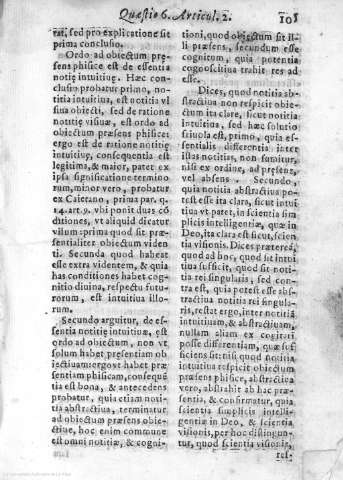 Quæstio 6. Articul. 2.
101
rat, sed pro explicatione sit
prima conclusio.
Ordo ad obiectum præ-
sens phisice est de essentia
notię intuitiuę. Hæc con-
clusio probatur primo, no-
titia intuitiua, est notitia vi
sua obiecti, sed de ratione
notitię visuæ, est ordo ad
obiectum præsens phisicè:
ergo est de ratione notitię
intuitiuę, consequentia est
legitima, & maior, patet ex
ipsa significatione termino-
rum, minor vero, probatur
ex Caietano, prima par. q.
14. art. 9. vbi ponit duas cō
ditiones, vt aliquid dicatur
visum: prima quod sit præ-
sentialiter obiectum viden
ti. Secunda quod habeat
esse extra videntem, & quia
has conditiones habet cogni-
tio diuina, respectu futu-
rorum, est intuitiua illo-
rum.
Secundo arguitur, de es-
sentia notitię intuitiuæ, est
ordo ad obiectum, non vt
solum habet præsentiam obie
ctiuam: ergo vt habet præ-
sentiam phisicam, consequē
tia est bona, & antecedens
probatur, quia etiam noti-
tia abstractiua, terminatur
ad obiectum præsens obie-
ctiue, hoc enim commune
est omni notitiæ, & cogni-
tioni, quod obiectum sit il-
li præsens, secundum esse
cognitum, quia potentia
cognoscitiua trahit res ad
esse.
Dices, quod notitia abs-
tractiua non respicit obie-
ctum ita clare, sicut notitia
intuitiua, sed hæc solutio
friuola est, primo, quia es-
sentialis differentia inter
istas notitias, non sumitur,
nisi ex ordine, ad præsens,
vel absens. Secundo,
quia notitia abstractiua po-
test esse ita clara, sicut intui
tiua vt patet, in scientia sim
plicis intelligentiæ, quæ in
Deo, ita clara est sicut, scien
tia visionis. Dices prætereà,
quod ad hoc, quod sit intui
tiua sufficit, quod sit notiti
tia rei singularis, sed con-
tra est, quia potest esse abs-
tractiua notitia rei singula-
ris, restat ergo, inter notitiā
intuitiuam, & abstractiuam,
nullam aliam ex cogitari
posse differentiam, quæ suf
ficiens sit: nisi quod notitia
intuitiua respicit obiectum
præsens phisice, abstractiua
vero, abstrahit ab hac præsē-
tia, & confirmatur, quia
scientia simplicis intelli-
gentiæ in Deo, & scientia
visionis, per hoc distinguun-
tur, quod scientia visionis,